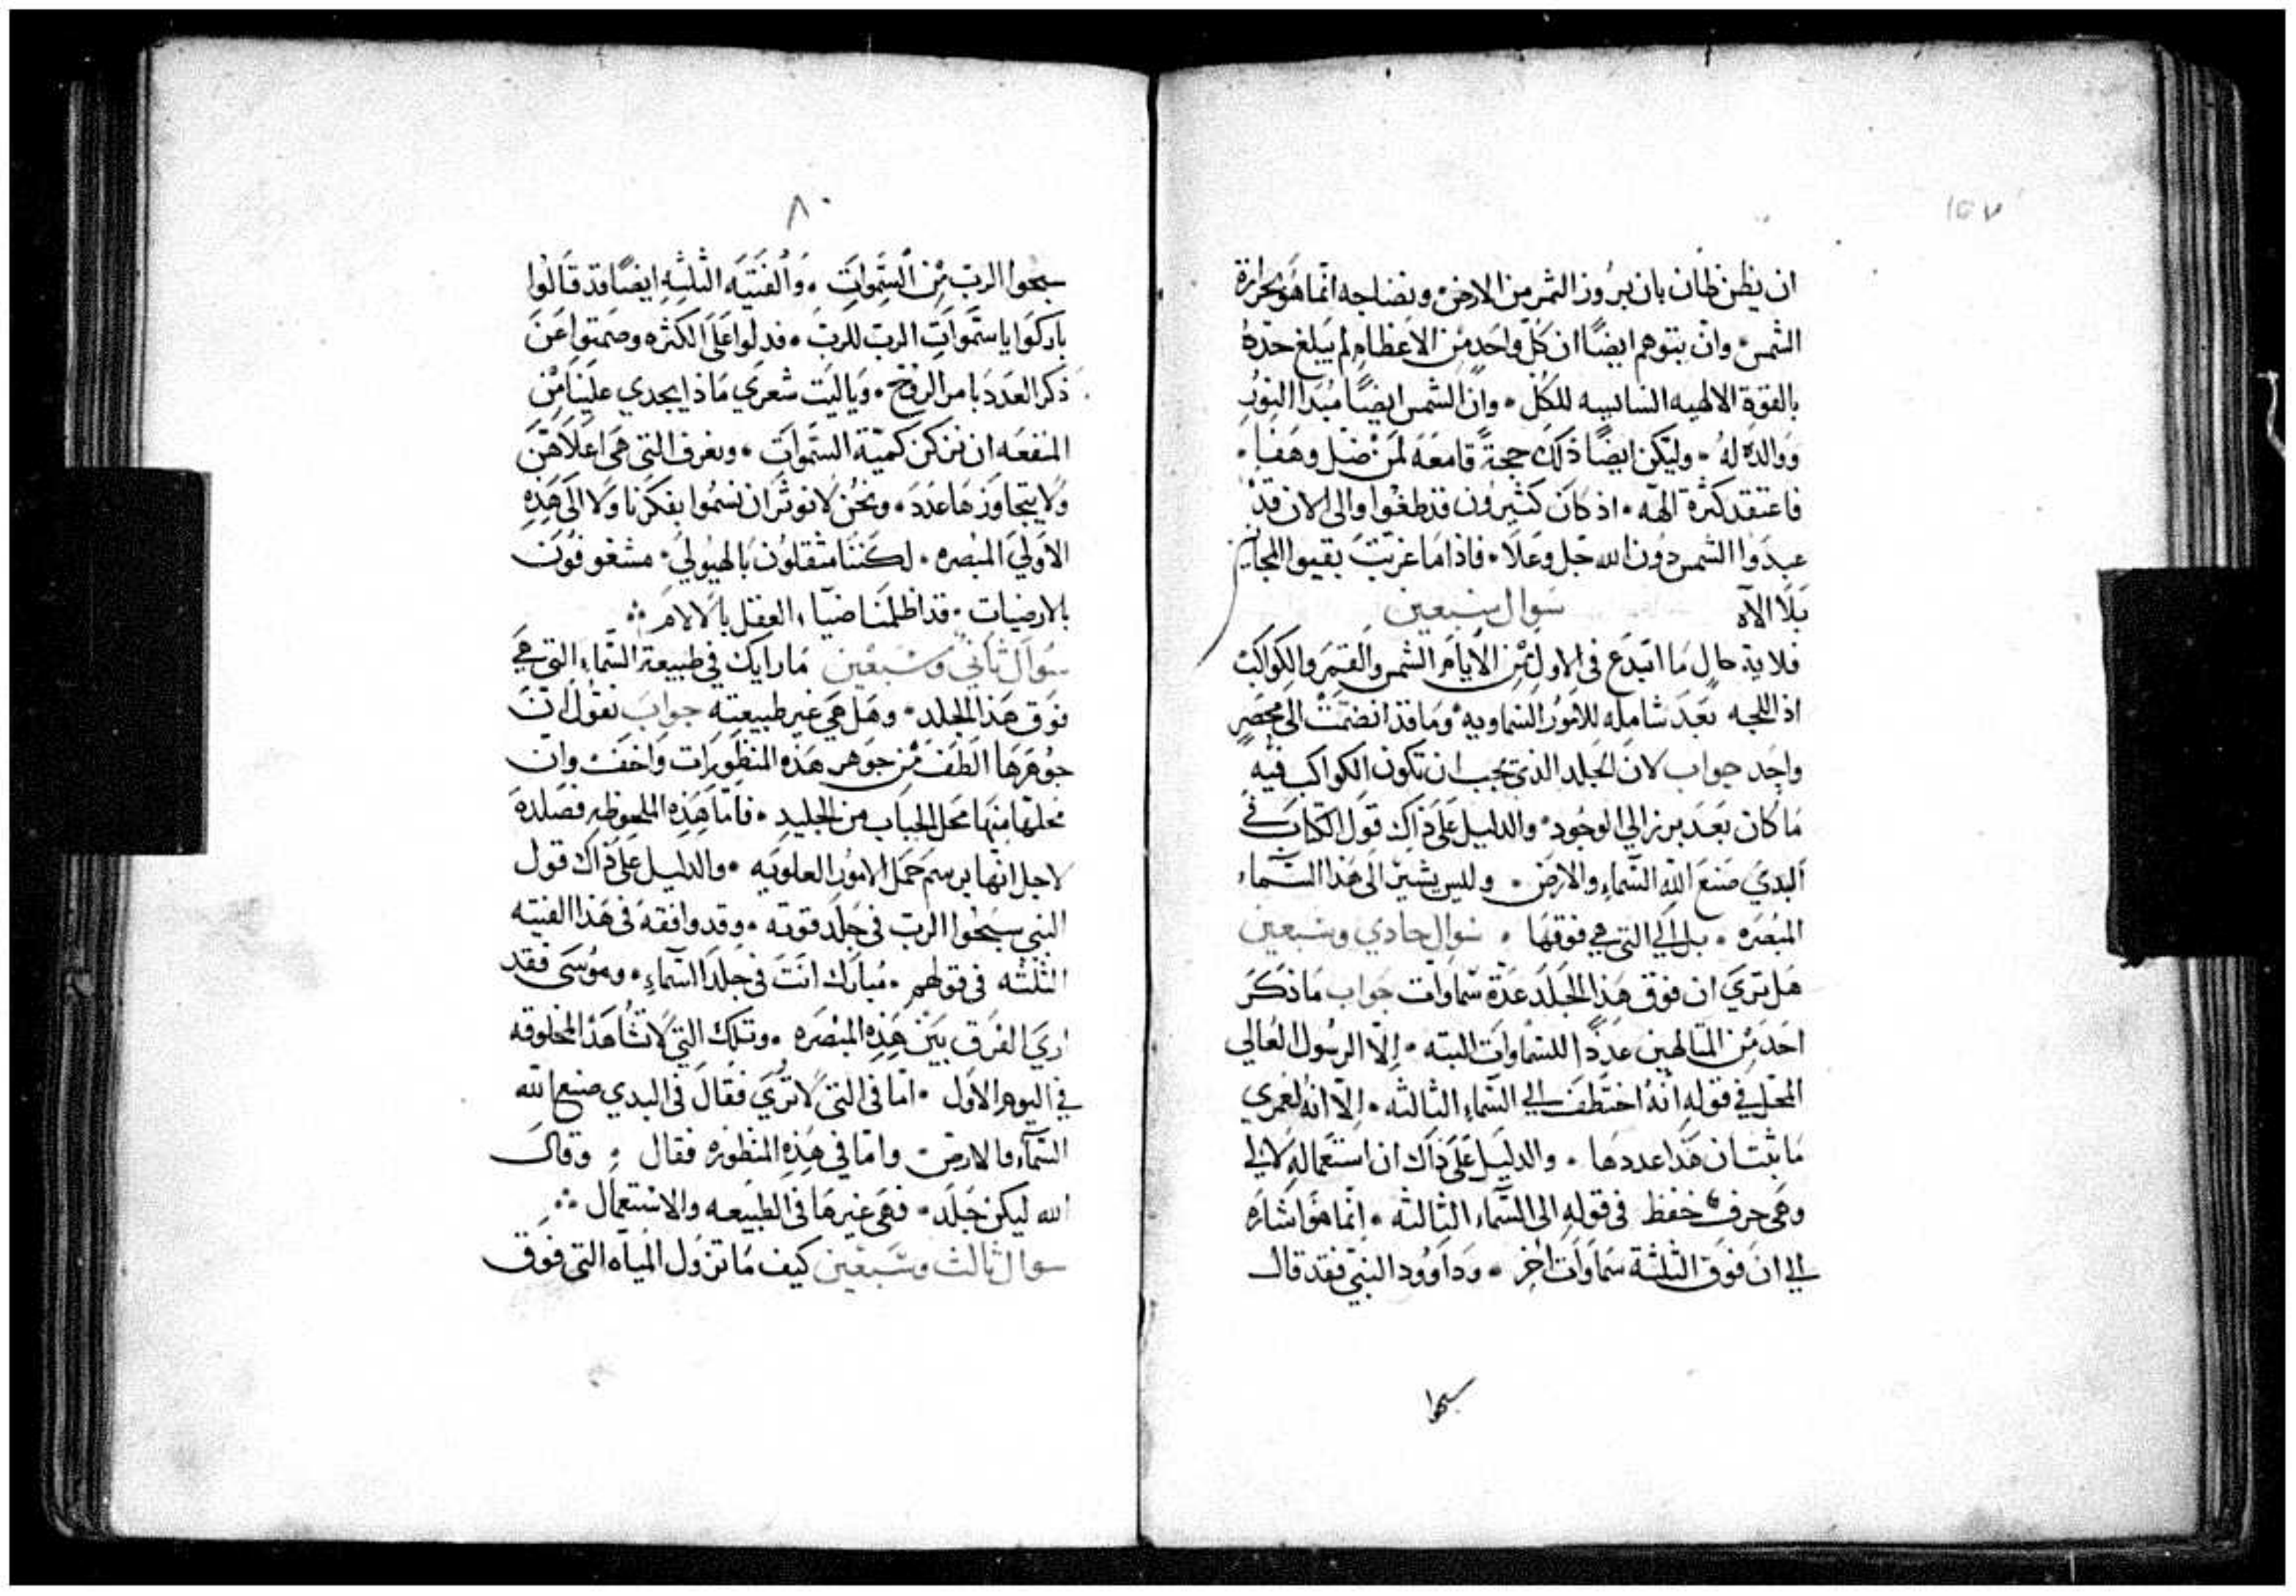 ان يظن ظان بان بروز الثمر من الارض ونضاجه انما هو بحرارة
الشمس وان يتوهم ايضًا ان كل واحد من الاعظام لم يبلغ حده
بالقوة الالهيه السايسه للكل وان الشمس ايضًا مبدا النور
ووالدة له وليكن ايضًا ذلك حجةً قامعه لمن ضل وهفا
فاعتقد كثرة الهه اذ كان كثيرون قد طغوا والى الان قد
عبدوا الشمس دون الله جل وعلا فاذا ما غربت بقيوا المجانين
بلا الاه سوال سبعين
فلاية حال ما ابتدع في الاول من الايام الشمس والقمر والكواكب
اذ اللجه بعد شامله للامور السماويه وما قد انضمت الى محصر
واحد جواب لان الجلد الذي يجب ان تكون الكواكب فيه
ما كان بعد برز الي الوجود والدليل على ذاك قول الكتاب في
البدي صنع الله السماء والارض وليس يشير الى هذا السماء
المبصره بل الي التي هي فوقها سوال حادي وسبعين
هل تري ان فوق هذا الجلد عدة سماوات جواب ما ذكر
احد من المتالهين عددًا للسماوات البته الا الرسول العالي
المحل في قوله انه اختطف الي السماء الثالثه الا انه لعمري
ما بثت ان هذا عددها والدليل على ذاك ان استعماله لالي
وهي حرف خفظ في قوله الى السماء الثالثه انما هو اشاره
الي ان فوق الثلثة سماوات اخر وداوود النبي فقد قال
سبحوا
٨٠
سبحوا الرب من السموات والفتيه الثلثه ايضًا قد قالوا
باركوا يا سموات الرب للرب فدلوا على الكثره وصمتوا عن
ذكر العدد بامر الروح ويا ليت شعري ماذا يجدي علينا من
المنفعه ان نزكن كمية السموات ونعرف التي هي اعلاهن
ولا يتجاوزها عدد ونحن لا نوثر ان نسموا بفكرنا ولا الى هذه
الاولي المبصره لكننا مثقلون بالهيولي مشغوفون
بالارضيات قد اظلمنا ضياء العقل بالالام
سوال ثاني وسبعين ما رايك في طبيعة السماء التي هي
فوق هذا الجلد وهل هي غير طبيعته جواب نقول ان
جوهرها الطف من جوهر هذه المنظورات واخف وان
محلها منها محل الحباب من الجليد فاما هذه الملحوظه فصلده
لاجل انها برسم حمل الامور العلويه والدليل على ذاك قول
النبي سبحوا الرب في جلد قوته وقد وافقه في هذا الفتيه
الثلثه في قولهم مبارك انت في جلد السماء وموسى فقد
اري الفرق بين هذه المبصره وتلك التي لا تشاهد المخلوقه
في اليوم الاول اما في التي لا تري فقال في البدي صنع الله
السماء والارض واما في هذه المنظوره فقال وقال
الله ليكن جلد فهي غيرها في الطبيعه والاستعمال
سوال ثالث وسبعين كيف ما تزول المياه التي فوق